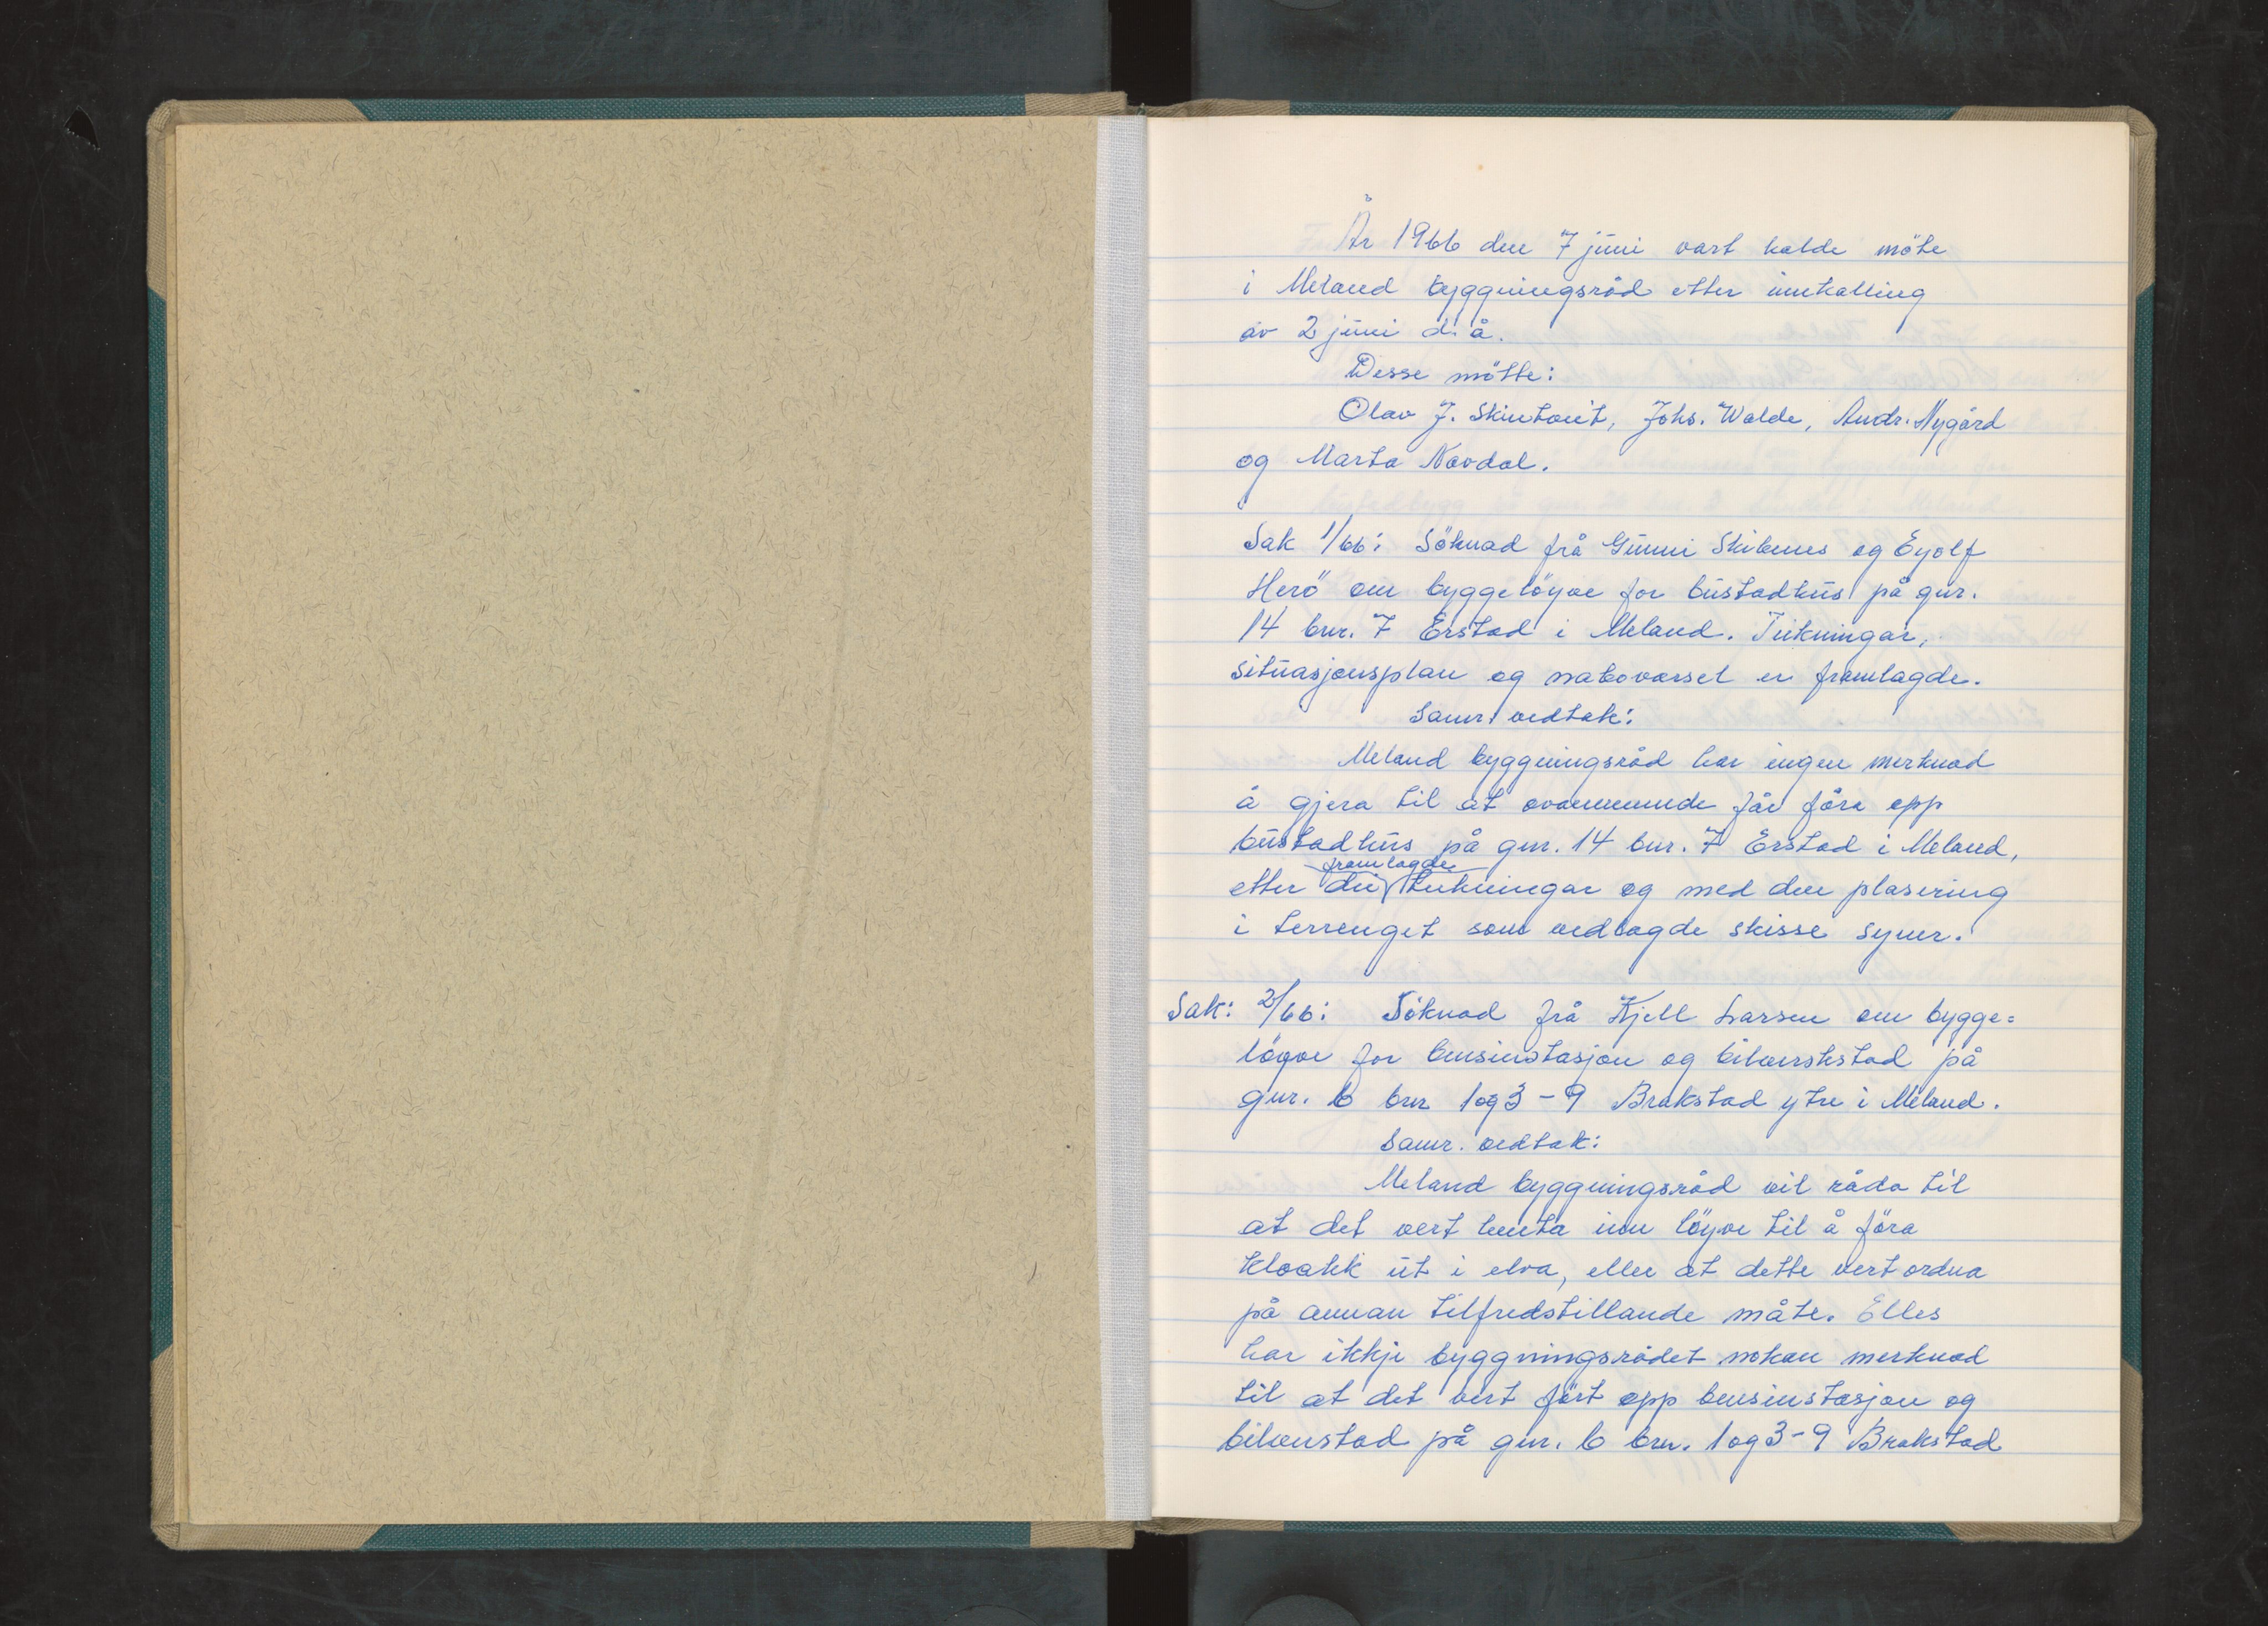 År 1966 den 7 juni vart halde möte
i Meland byggningsråd etter innkalling
av 2 juni d.å.
Desse mötte:
Olav J. Skintveit, Johs. Walde, Andr. Nygård
og Marta Navdal.
Sak 1/66: Söknad frå Gunni Skibenes og Eyolf
Herö om byggelöyve for bustadhus på gnr.
14 bnr. 7 Erstad i Meland. Teikningar,
situasjonsplan og nabovarsel er framlagde.
Samr. vedtak:
Meland byggningsråd har ingen merknad
å gjera til at ovannemnde får föra opp
bustadhus på gnr. 14 bnr. 7 Erstad i Meland,
etter dei framlagde teikningar og med den plasering
i terrenget som vedlagde skisse syner.
Sak: 2/66: Söknad frå Kjell Larsen om bygge=
löyve for bensinstasjon og bilverkstad på
gnr. 6 bnr 1 og 3-9 Brakstad ytre i Meland.
Samr. vedtak:
Meland byggningsråd vil råda til
at det vert henta inn löyve til å föra
kloakk ut i elva, eller at dette vert ordna
på annan tilfredstillande måte. Elles
har ikkje byggningsrådet nokon merknad
til at det vert fört opp bensinstasjon og
på gnr. 6 bnr. 1 og 3-9 Brakstad